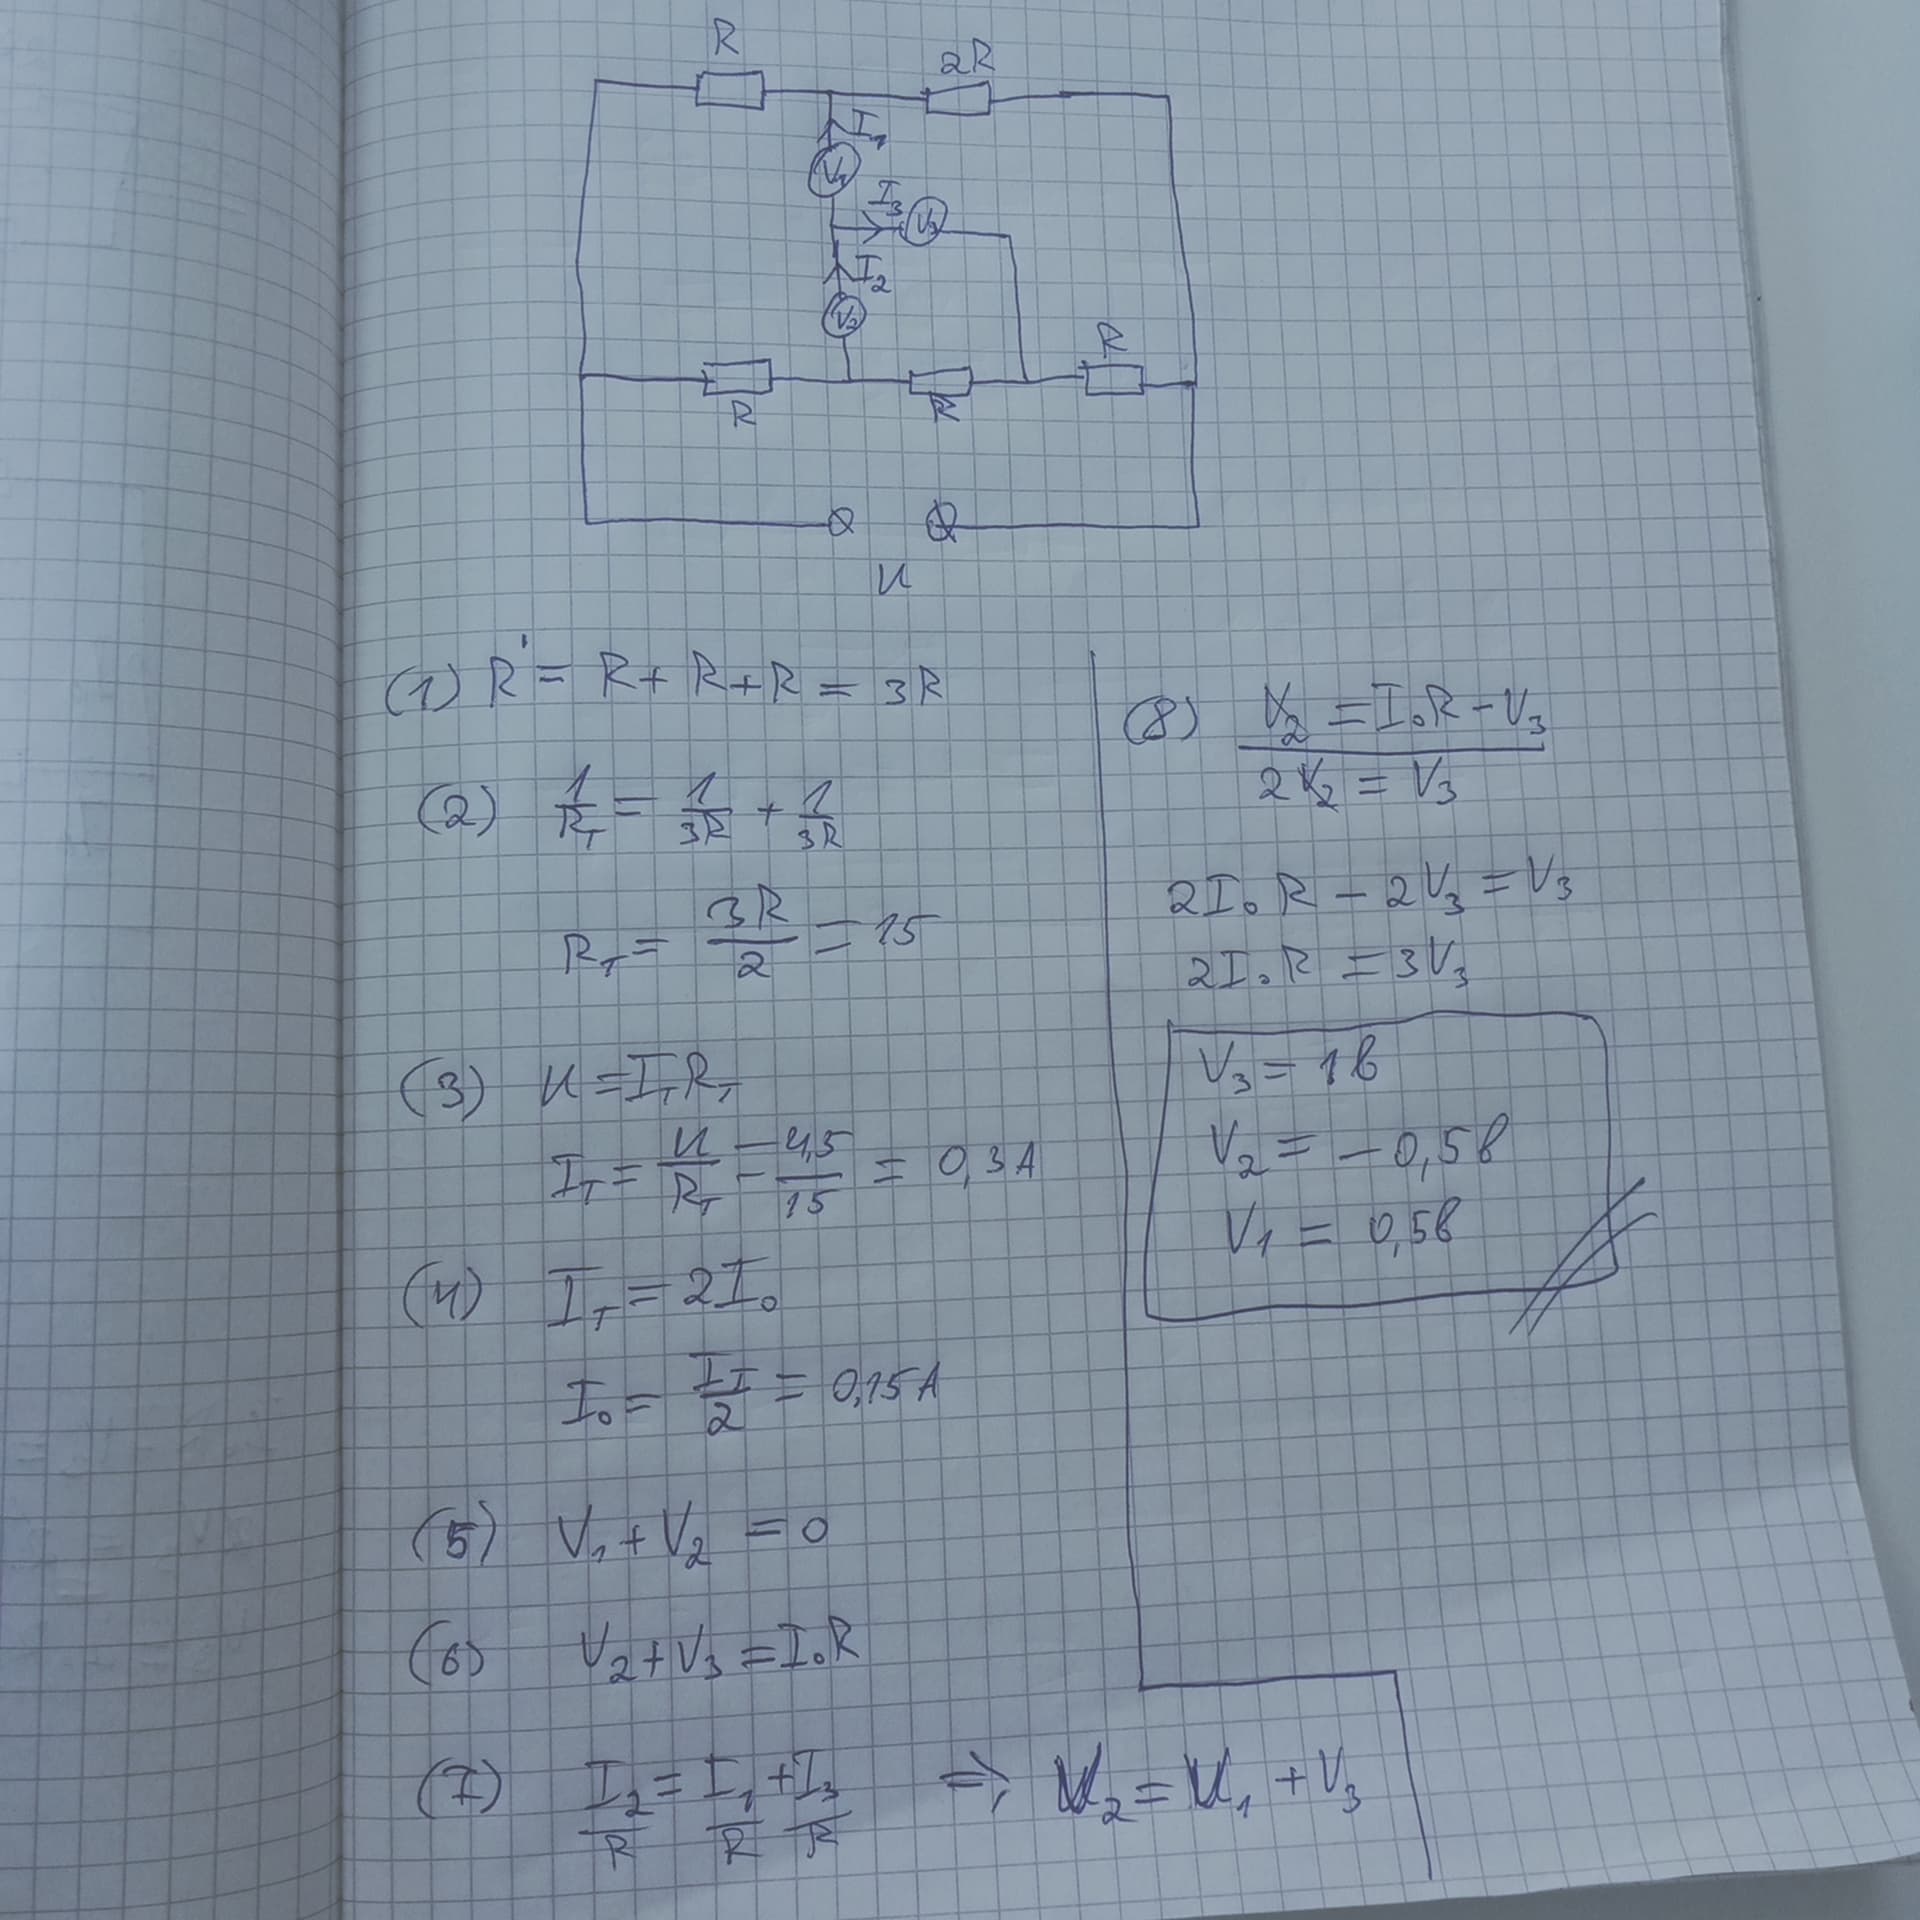 R
2R
I₁
V₁
I₃
V₃
I₂
V₂
R
R
R
U
(1) R' = R + R + R = 3R
(2) 1/R_T = 1/3R + 1/3R
R_T = 3R/2 = 15
(3) U = I_T R_T
I_T = U/R_T = 4,5/15 = 0,3 A
(4) I_T = 2I₀
I₀ = I_T/2 = 0,15 A
(5) V₁ + V₂ = 0
(6) V₂ + V₃ = I₀R
(7) I₂/R = I₁/R + I₃/R ⇒ V₂ = V₁ + V₃
(8) V₂ = I₀R - V₃
2V₂ = V₃
2I₀R - 2V₃ = V₃
2I₀R = 3V₃
V₃ = 1 в
V₂ = - 0,5 в
V₁ = 0,5 в